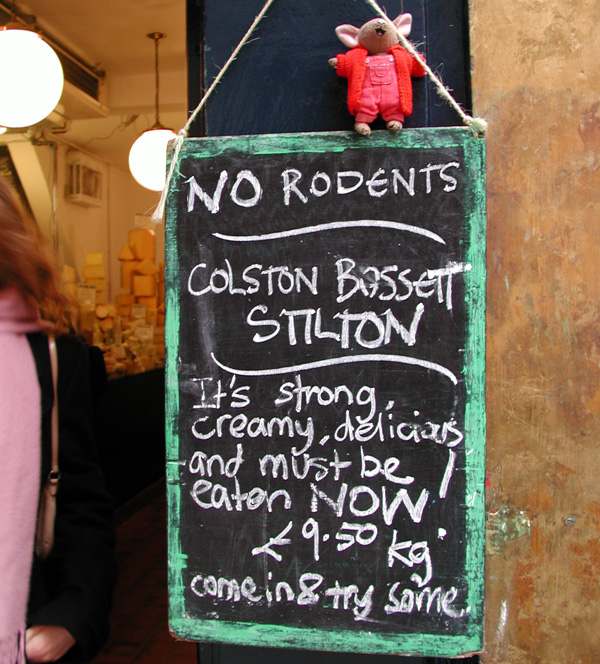 NO RODENTS
COLSTON BASSETT
STILTON
It's strong,
creamy, delicious
and must be
eaten NOW!
£9.50 kg
come in & try some.